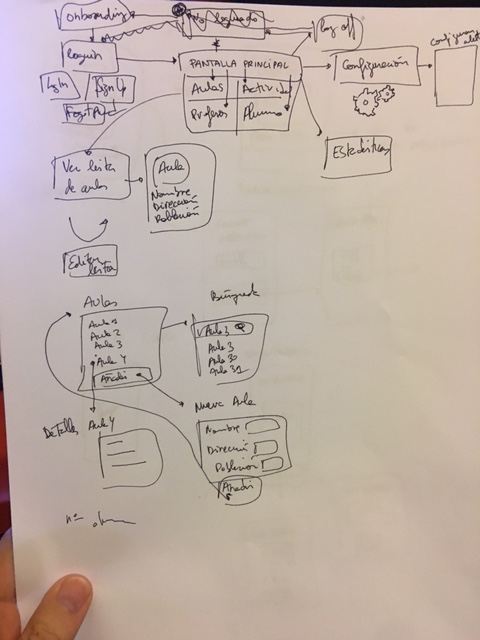 onboarding
Log off
Configurar
Log In
Sign Up
PANTALLA PRINCIPAL
Aulas
Activida
Profesores
Alumno
Configuración
Estadísticas
Ver lista
de aulas
Aula
Nombre
Dirección
Población
Editar
lista
Aulas
Aula 1
Aula 2
Aula 3
Aula 4
Añadir
Búsqueda
Aula 3
Aula 3
Aula 30
Aula 31
Detalles Aula 4
Nueva Aula
Nombre
Dirección
Población
Añadir
nº